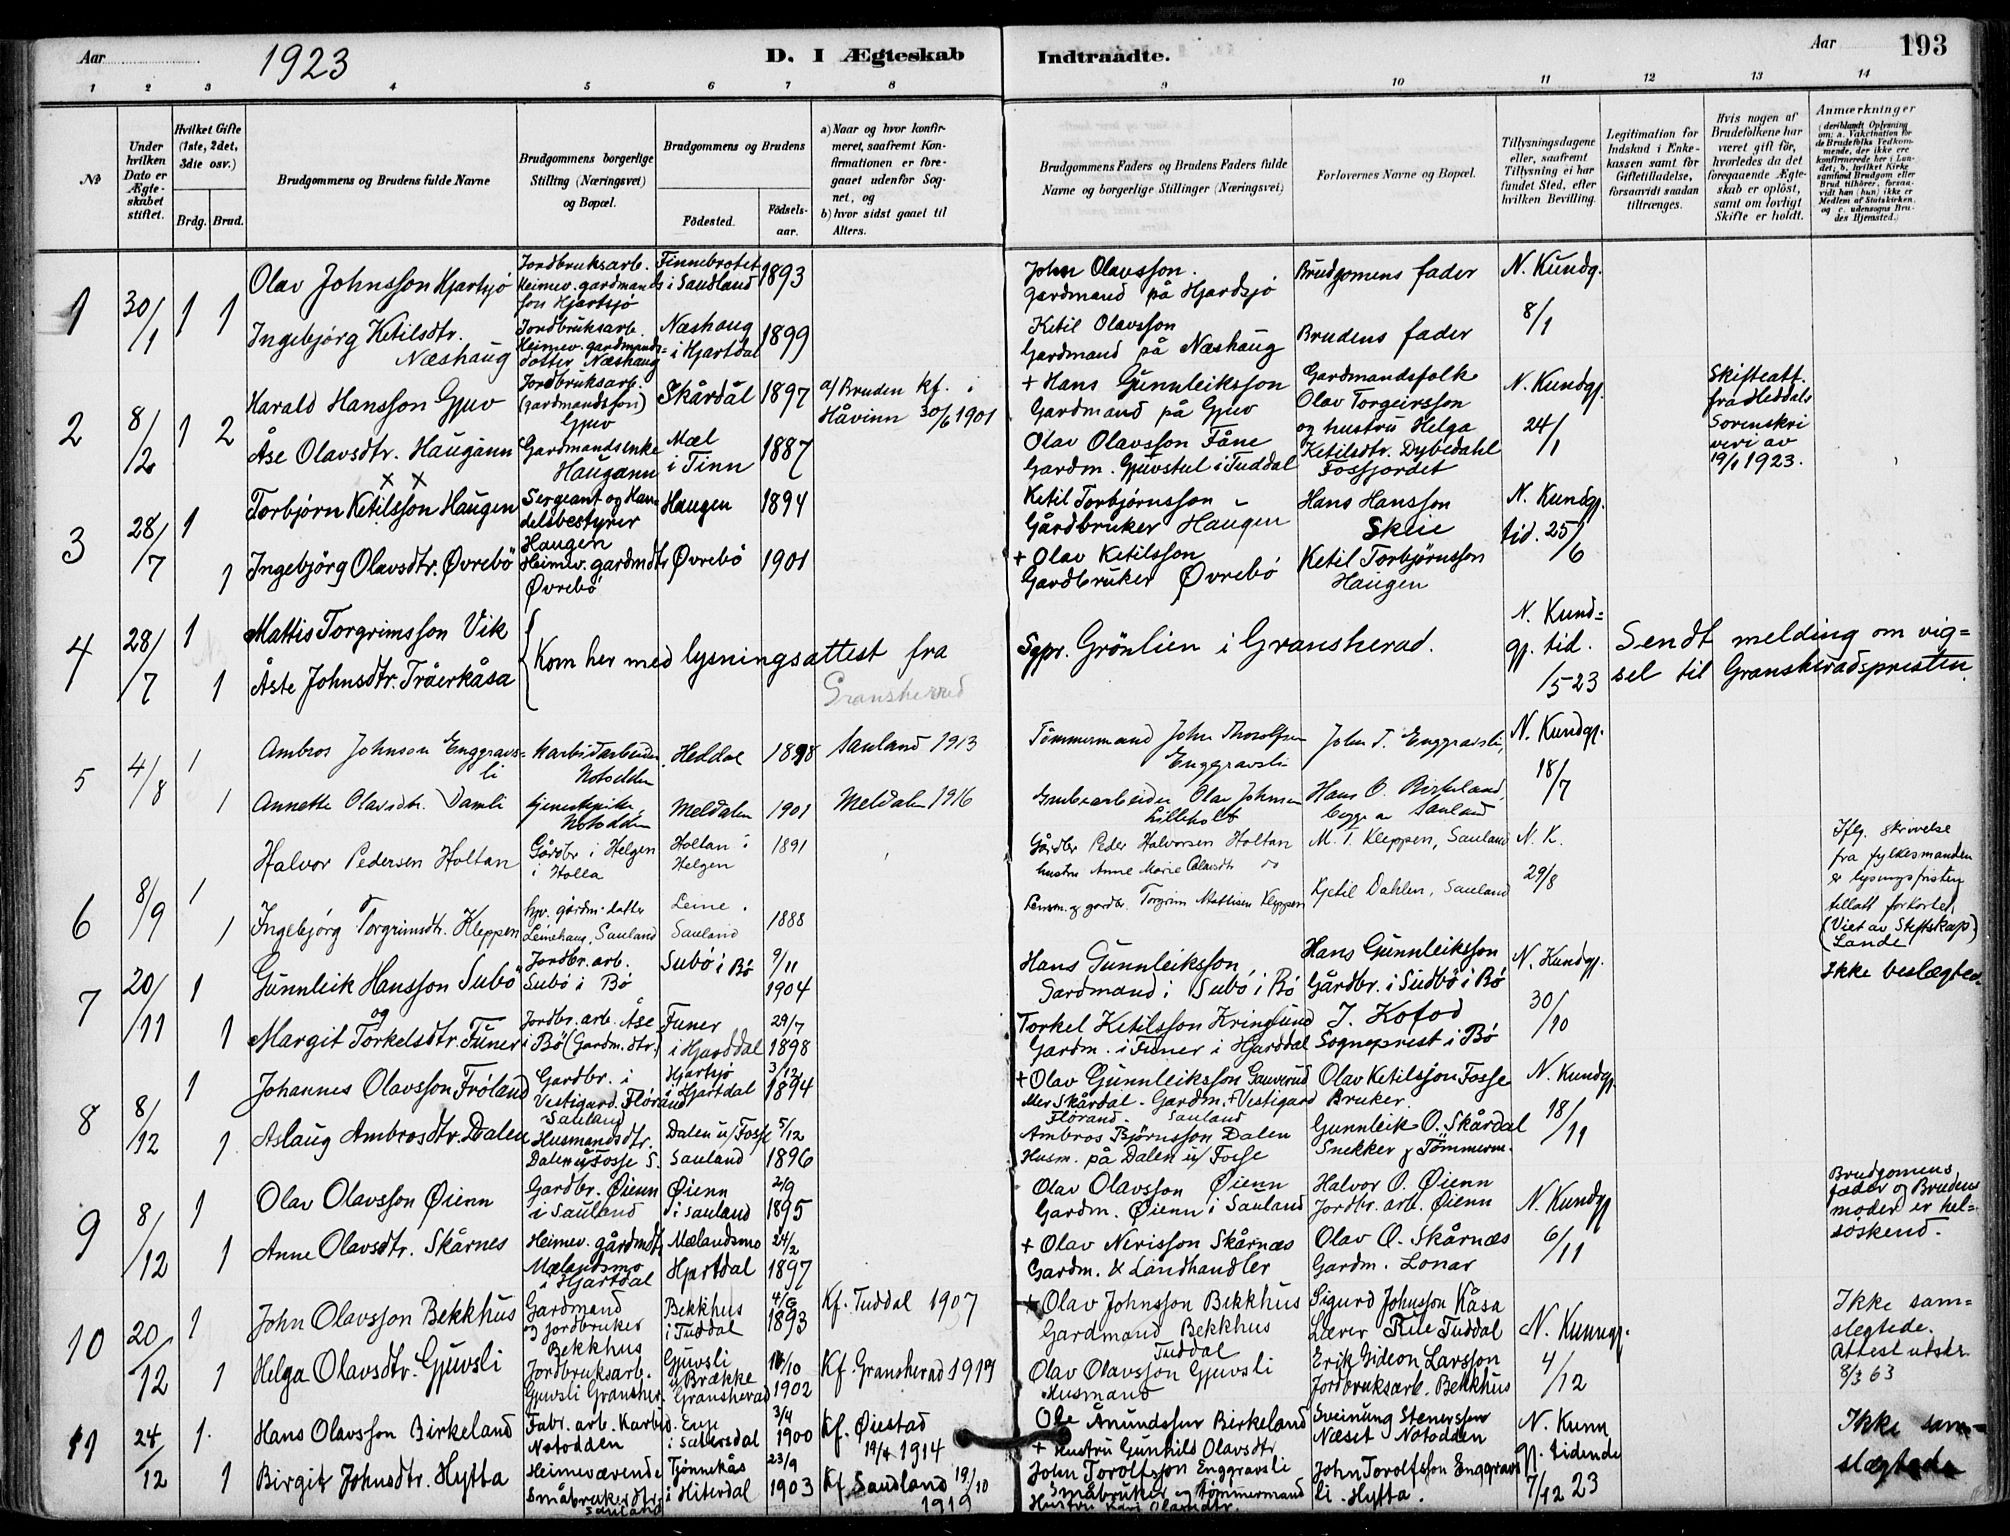 Aar 1923
D. I Ægteskab
Indtraadte.
Aar 193
1 2 3 4 5 6 7 8 9 10 11 12 13 14
№
Under hvilken Dato er Ægteskabet stiftet.
Hvilket Gifte (1ste, 2det, 3die osv.)
Brdg. Brud.
Brudgommens og Brudens fulde Navne
Brudgommens borgerlige Stilling (Næringsvei) og Bopæl.
Brudgommens og Brudens
Fødested.
Fødselsaar.
a) Naar og hvor konfirmeret, saafremt Konfirmationen er foregaaet udenfor Sognet, og
b) hvor sidst gaaet til Alters.
Brudgommens Faders og Brudens Faders fulde Navne og borgerlige Stillinger (Næringsvei)
Forlovernes Navne og Bopæl.
Tillysningsdagene eller, saafremt Tillysning ei har fundet Sted, efter hvilken Bevilling.
Legitimation for Indskud i Enkekassen samt for Giftetilladelse, forsaavidt saadan tiltrænges.
Hvis nogen af Brudefolkene har været gift før, hvorledes da det foregaaende Ægteskab er opløst, samt om lovligt Skifte er holdt.
Anmærkninger
(deriblandt Oplysning om: a. Vakcination for de Brudefolks Vedkommende, der ikke ere konfirmerede her i Landet; b. hvilket Kirkesamfund Brudgom eller Brud tilhører, forsaavidt han (hun) ikke er Medlem af Statskirken, og c. udensogns Brudes Hjemsted.)
1 30/1 1 1
Olav Johnsson Hjartsjø
Jordbruksarb. Heimev. gardmands son Hjartsjø
Finnebrotet i Saudland 1893
John Olavsson. Gardmand på Hjardsjø
Brudgomens fader
N. Kundg. 8/1
Ingebjørg Ketilsdtr. Næshaug
Jordbruksarb. Heimev. gardmands= dotter Næshaug
Næshaug i Hjartdal 1899
Ketil Olavsson Gardmand på Næshaug
Brudens fader
2 8/2 1 2
Harald Hansson Gjuv
Jordbruksarb. (gardmandsson) Gjuv
Skårdal 1897
a/ Bruden kf. i Håvinn 30/6 1901
+ Hans Gunnleiksson Gardmand på Gjuv
Gardmandsfolk Olav Torgeirsson og hustru Helga Ketilsdtr. Dybedahl Fosfjordet
N. Kundgj. 24/1
Skifteatt. fra Heddals Sorenskriveri av 19/1 1923.
Åse Olavsdtr. Haugann
Gardmandsenke Haugann
Mæl i Tinn 1887
Olav Olavsson Fåne Gardm. Gjuvstul i Tuddal
3 28/7 1
Torbjørn Ketilsson Haugen
Sergeant og Handelsbestyrer Haugen
Haugen 1894
Ketil Torbjørnsson Gårdbruker Haugen
Hans Hansson Skeie
N. Kundgj. tid. 25/6
1 Ingebjørg Olavsdtr. Øvrebö
Heimev. gardmdtr Øvrebö
Øvrebö 1901
+ Olav Ketilsson Gardbruker Øvrebö
Ketil Torbjørnsson Haugen
4 28/7 1
Mattis Torgrimsson Vik
1 Åste Johnsdtr. Tråerkåsa
Kom her med lysningsattest fra Sgpr. Grönlien i Gransherad.
Gransherred
N. Kund= gj. tid. 1/5 23
Sendt melding om vig= sel til Gransheradspresten.
5 4/8 1
Ambros Johnson Enggravs= li
Karbidarbeider Notodden
Heddal 1898
Sauland 1913
Tømmermand John Thorolfsen Enggravsli
John T. Enggravsli,
N. Kundgj. 18/7
1 Annette Olavsdtr. Damli
tjenestepike Notodden
Meldalen 1901
Meldalen 1916
Grubearbeider Olav Johnsen Lilleholt
Hans O. Birkeland, begge av Sauland
6 8/9 1
Halvor Pedersen Holtan
Gårdbr i Helgen i Holla
Holtan i Helgen 1891
Gårdbr Peder Halvorsen Holtan hustru Anne Marie Olavsdtr do
M. T. Kleppen, Sauland
N. K. 29/8
Iflg. skrivelse fra fylkesmanden er lysningsfristen tillatt forkortet, (Viet av Stiftskap. Lande)
1 Ingebjørg Torgrimsdtr. Kleppen
hjv. gårdm. datter Leinehaug, Sauland
Leine Sauland 1888
Lensm. og gardbr. Torgrim Mattisen Kleppen
Kjetil Dahlen, Sauland
7 20/11 1
Gunnleik Hansson Subö
og
Jordbr. arb. Subö i Bø
Subö i Bø 9/11 1904
Hans Gunnleiksson, Gardmand i Subö i Bø
Hans Gunnleiksson Gårdbr. i Sudbö i Bö
N. Kundgj. 30/10
Ikke beslægted.
1 Margit Torkelsdtr. Funer
Jordbr. arb. Åse i Bö (Gardm. dtr.)
Funer i Hjarddal 29/7 1898
Torkel Ketilsson Kringlund Gardm. i Funer i Hjarddal
J. Kofod Sogneprest i Bö
8 8/12 1
Johannes Olavsson Frøland
Gardbr. i Vestigard. Flörand Sauland
Hjartsjø i Hjartdal 3/12 1894
+ Olav Gunnleiksson Gauverud Skårdal. Gardm. i Vestigard Flørand. Sauland
Olav Ketilsson Fosse Bruker.
N. Kundgj. 18/11
1 Aslaug Ambrosdtr. Dalen
Husmandsdtr. Dalen u/ Fosse S.
Dalen u/ Fosse Sauland 5/12 1896
Ambros Björnsson Dalen Husm. på Dalen u/ Fosse
Gunnleik O. Skårdal Snekker & Tömmerm.
9 8/12 1
Olav Olavsson Øienn
Gardbr. Øienn i Sauland
Øienn i Sauland 2/9 1895
Olav Olavsson Øienn Gardm. Øienn i Sauland
Halvor O. Øienn Jordbr. arb. Øienn
N. Kundgj 6/11
Brudgomens fader og Brudens moder er hel= søskend.
1 Anne Olavsdtr. Skårnes
Heimev. gårdmdtr Mælandsmo i Hjartdal
Mælandsmo Hjartdal 24/2 1897
+ Olav Nerisson Skårnæs Gardm. & Landhandler
Olav O. Skårnæs Gardm. Lonar
10 20/12 1
John Olavsson Bekkhus
Gardmand og jordbruker Bekkhus
Bekkhus i Tuddal 4/6 1893
Kf. Tuddal 1907
+ Olav Johnsson Bekkhus Gardmand Bekkhus Tuddal
Sigurd Johnsson Kåsa Lærer Rue Tuddal
N. Kunngj. 4/12
Ikke sam= slegtede. Attest utstr. 8/3 63
1 Helga Olavsdtr. Gjuvsli
Jordbruksarb. Gjuvsli Gransher.
Gjuvsli u/ Brække Gransherad 16/10 1902
Kf. Gransherad 1917
Olav Olavsson Gjuvsli Husmand
Erik Gideon Larsson Jordbruksarb. Bekkhus
11 24/12 1.
Hans Olavsson Birkeland
Fabr. arb. Karbid. Notodden
Evje i Sætersdal 3/4 1900
Kf. Øiestad 19/4 1914
Ole Ånundssun Birkeland + Hustru Gunhild Olavsdtr
Sveinung Stenersson Næset Notodden
N. Kunngj. tidende 7/12 23
Ikke sam= slægtede
1 Birgit Johnsdtr. Hytta
Heimeværende Småbrukerdtr. Sauland
Tjønnekås i Hiterdal 23/9 1903
Kf. Saudland 19/10 1919
John Torolfsson Enggravsli Småbruker og tömmermand Hustru Kari Olavsdtr.
John Torolfsson Enggravsli. Hytta.